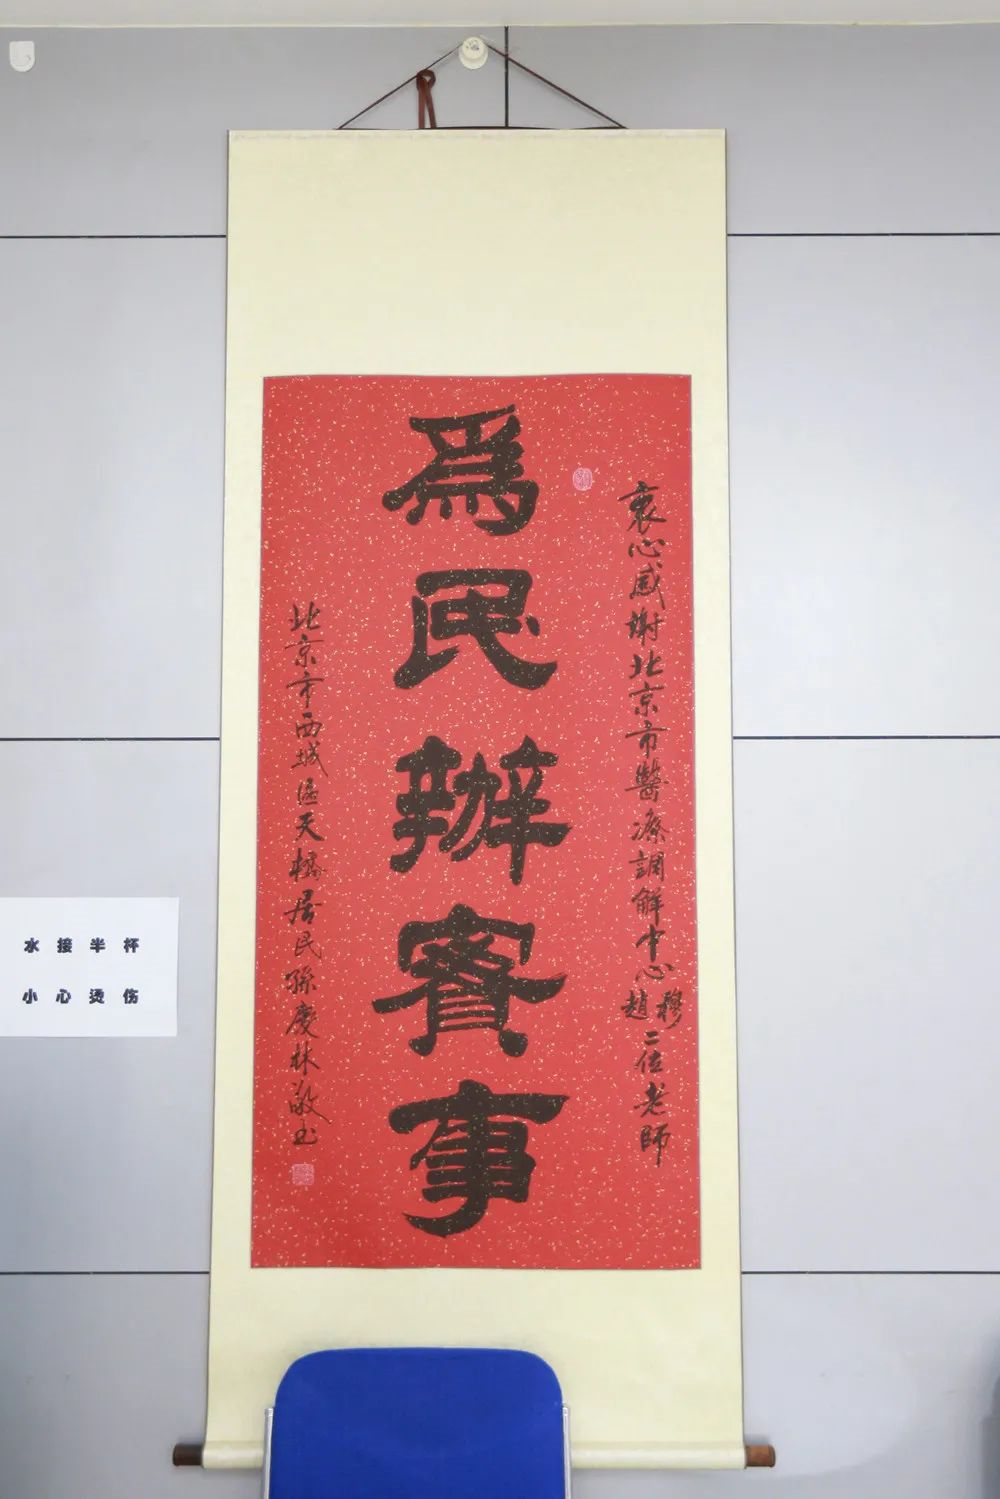 衷心感谢北京市醫療調解中心趙穆二位老師
為民辦實事
北京市西城區天橋居民孫慶林敬书
水接半杯
小心烫伤